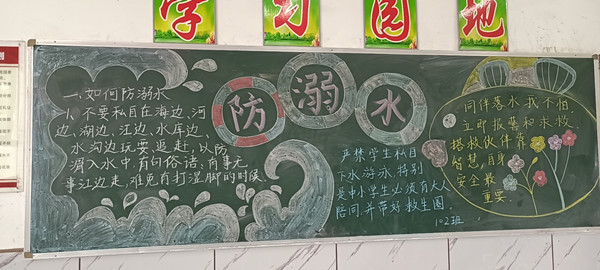 学习园地
防溺水
一、如何防溺水
1、不要私自在海边、河
边、湖边、江边、水库边、
水沟边玩耍、追赶，以防
滑入水中，有句俗话：有事无
事江边走，难免有打湿脚的时候
严禁学生私自
下水游泳，特别
是中小学生必须有大人
陪同，并带好救生圈。
102班
同伴落水我不怕
立即报警和求救
搭救伙伴靠
智慧，自身
安全最
重要.